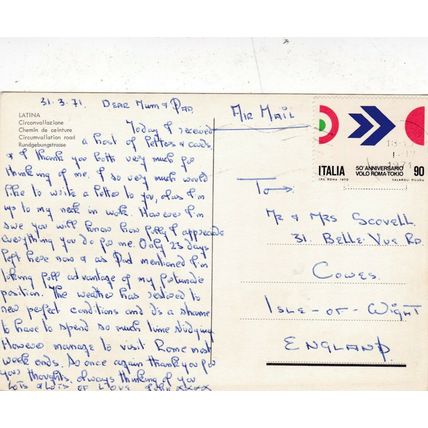 31.3.71. DEAR MUM & DAD
LATINA
Circonvallazione
Chemin de ceinture
Circumvallation road
Rundgebungstrasse
Today I received
a host of letters & cards
& I thank you both very much for
thinking of me. I so very much would
like to write a letter to you, alas I'm
up to my neck in work. However I'm
sure you will know how fully I appreciate
everything you do for me. Only 23 days
left here now & as Dad mentioned I'm
taking full advantage of my fortunate
position. The weather has to
new perfect conditions and it's a shame
to have to spend so much time studying
However manage to visit Rome most
week ends. So once again thank you for
your thoughts. Always thinking of you
LOTS & LOTS OF LOVE John xxxx
AIR MAIL
ITALIA 50° ANNIVERSARIO
VOLO ROMA-TOKIO 90
To →
MR & MRS SCOVELL
31. BELLE VUE RD.
COWES.
ISLE-OF-WIGHT
ENGLAND.